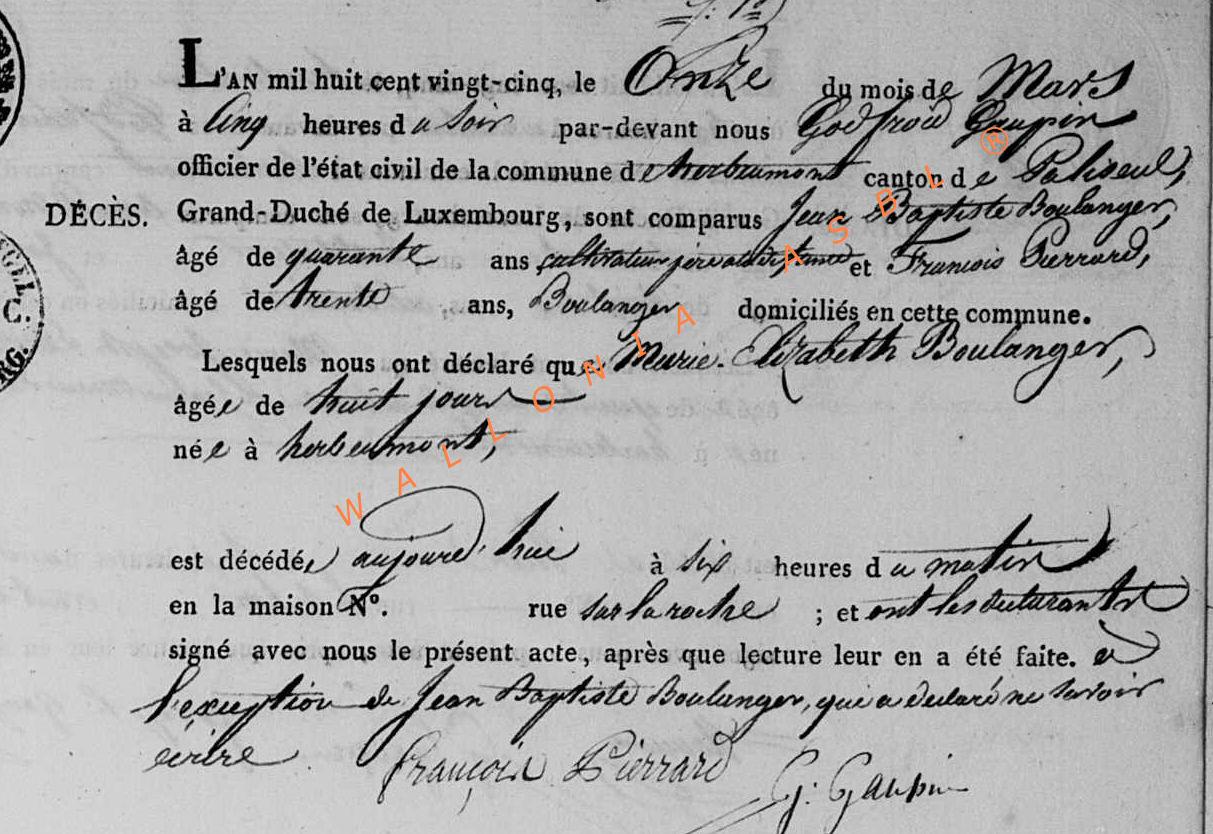 L'AN mil huit cent vingt-cinq, le Onze du mois de Mars
à Cinq heures du Soir par-devant nous Godfroid Gaupin
officier de l'état civil de la commune de herbeumont canton de Paliseul,
DÉCÈS. Grand-Duché de Luxembourg, sont comparus Jean Baptiste Boulanger,
âgé de quarante ans cultivateur père de la défunte et François Pierrard,
âgé de trente ans, Boulanger domiciliés en cette commune.
Lesquels nous ont déclaré que Marie-Elizabeth Boulanger,
âgée de huit jours
née à herbeumont,
est décédée aujourd'hui à six heures du matin
en la maison N°. rue sur la roche ; et ont les déclarants
signé avec nous le présent acte, après que lecture leur en a été faite. à
l'exception de Jean Baptiste Boulanger, qui a déclaré ne savoir
écrire
françois Pierrard G: Gaupin
WALLONIA ASBL ®
C.
RG.